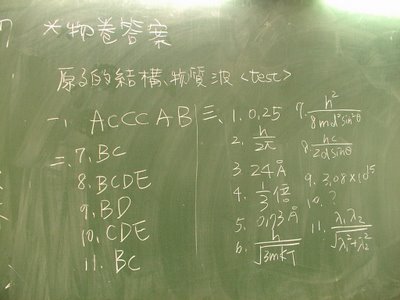 *物卷答案
原子的結構、物質波<test>
一、ACCCAB
二、7. BC
8. BCDE
9. BD
10. CDE
11. BC
三、1. 0.25
2. h/2π
3. 24Å
4. 1/3倍
5. 0.73Å
6. h/√3mKT
7. h²/8md²sin²θ
8. hc/2dsinθ
9. 3.08×10⁵
10. ?
11. λ₁λ₂/√λ₁²+λ₂²